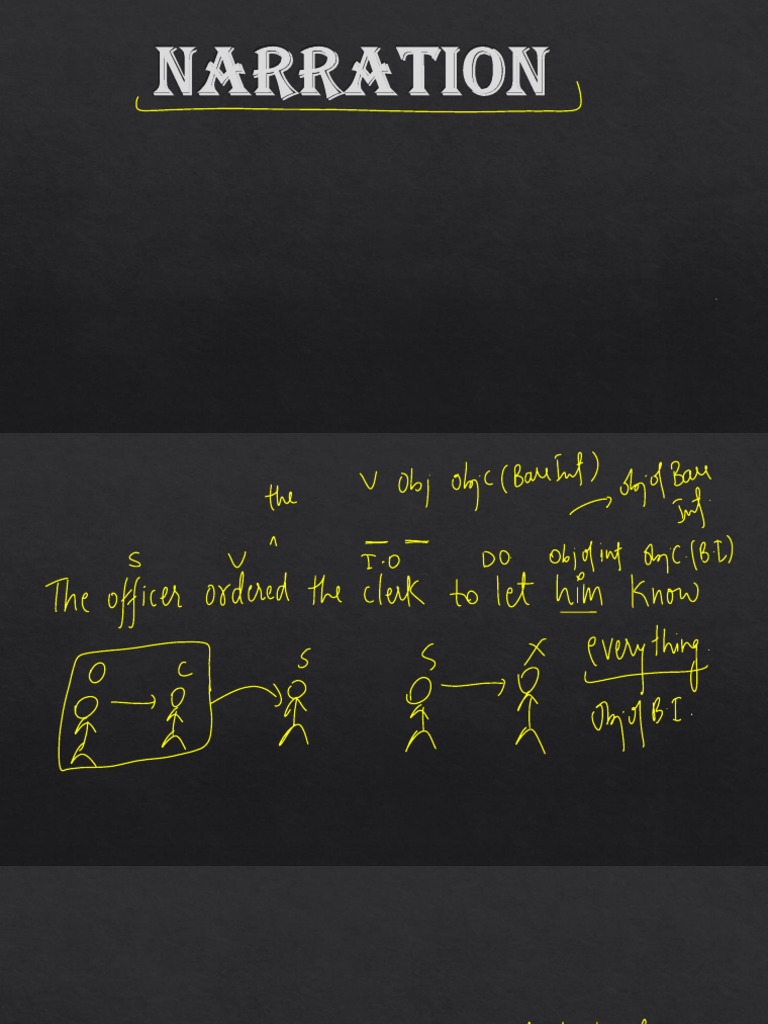 NARRATION
the
V Obj objC (Bare Inf)
Obj of Bare Inf.
S V ^ I.O DO Obj of inf Obj C. (B.I)
The officer ordered the clerk to let him know
everything.
Obj of B.I.
O C S S X